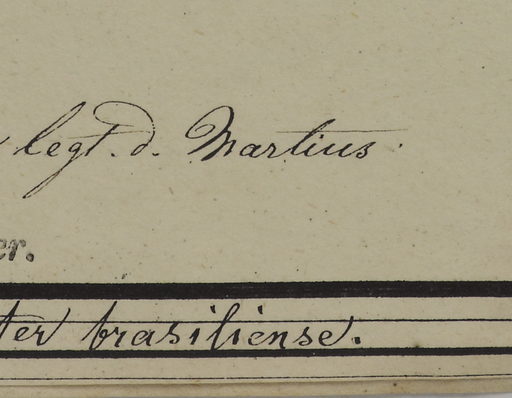 legt. d. Martius
er.
ter brasiliense.